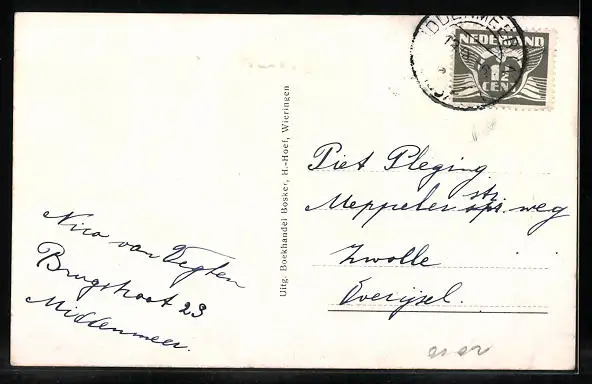 MIDDENMEER
NEDERLAND
1½
CENT
Nico van Vegten
Brugstraat 23
Middenmeer.
Uitg. Boekhandel Bosker, H.-Hoef, Wieringen
Piet Pleging
str.
Meppeler weg
Zwolle
Overijsel.